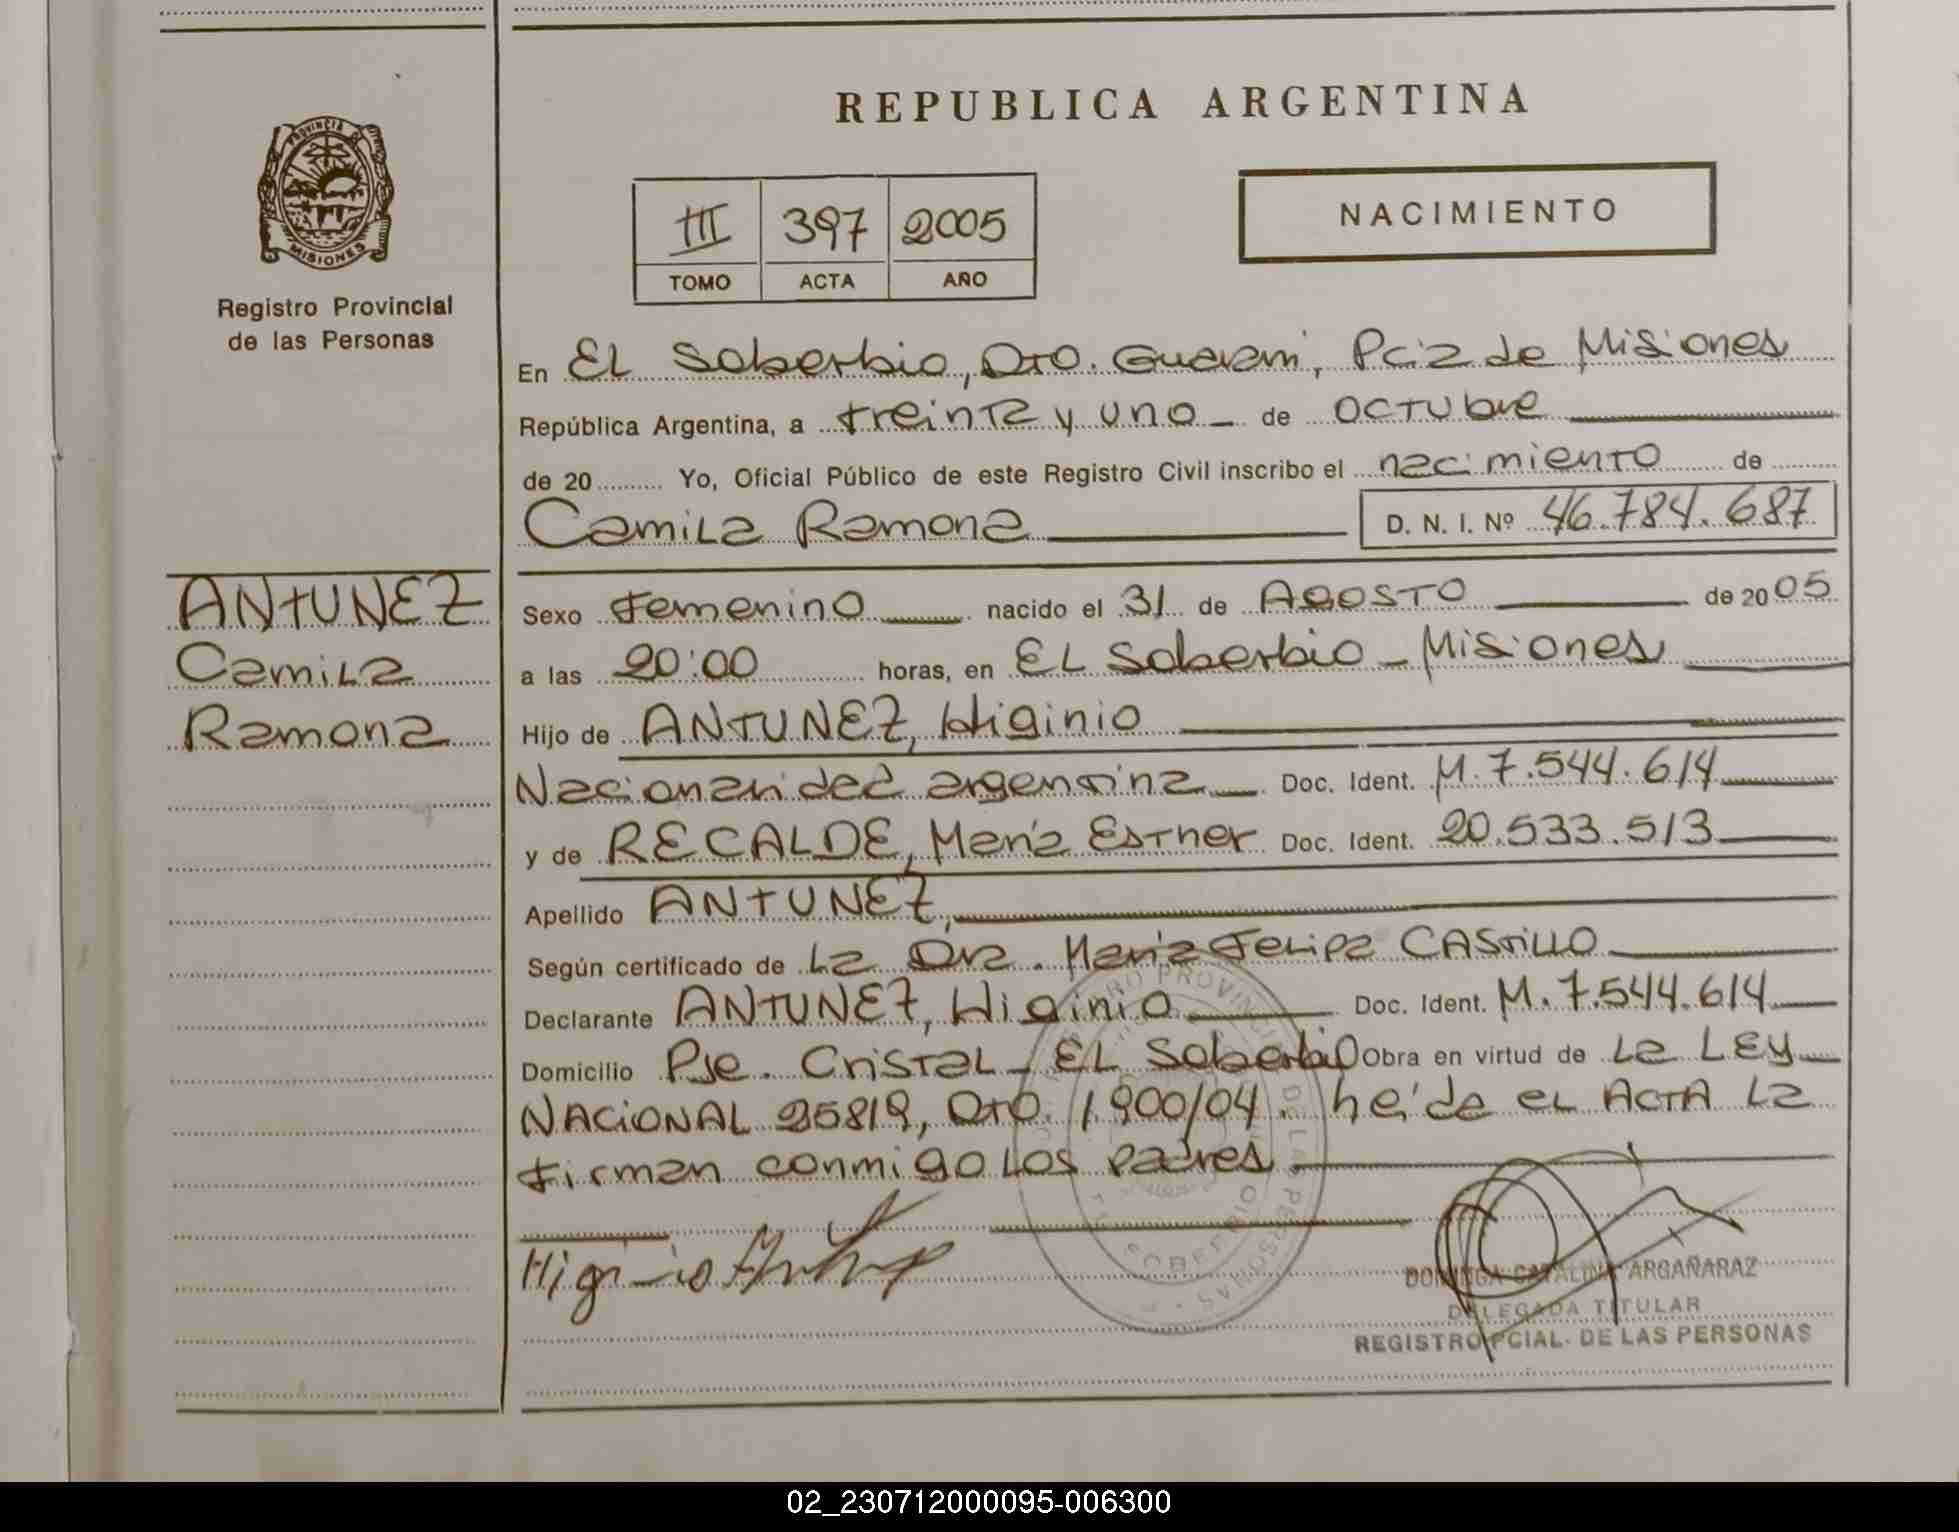 REPUBLICA ARGENTINA
PROVINCIA DE
MISIONES
Registro Provincial
de las Personas
III 397 2005
TOMO ACTA AÑO
NACIMIENTO
En EL Soberbio, Dto. Guarani, Pcia de Misiones
República Argentina, a treinta y uno de octubre
de 20 Yo, Oficial Público de este Registro Civil inscribo el nacimiento de
Camila Ramona D. N. I. Nº 46.784.687
ANTUNEZ
Camila
Ramona
Sexo Femenino nacido el 31 de AGOSTO de 2005
a las 20:00 horas, en EL Soberbio - Misiones
Hijo de ANTUNEZ, Higinio
Nacionalidad argentina Doc. Ident. M. 7.544.614
y de RECALDE, María Esther Doc. Ident. 20.533.513
Apellido ANTUNEZ,
Según certificado de La Dra. María Felipa CASTILLO
Declarante ANTUNEZ, Higinio Doc. Ident. M. 7.544.614
Domicilio Pje. Cristal - EL Soberbio Obra en virtud de La LEY
NACIONAL 25819, Dto. 1.900/04. heída el ACTA La
firman conmigo los padres
Higinio
DOMINGA CATALINA ARGAÑARAZ
DELEGADA TITULAR
REGISTRO PCIAL. DE LAS PERSONAS
02_230712000095-006300